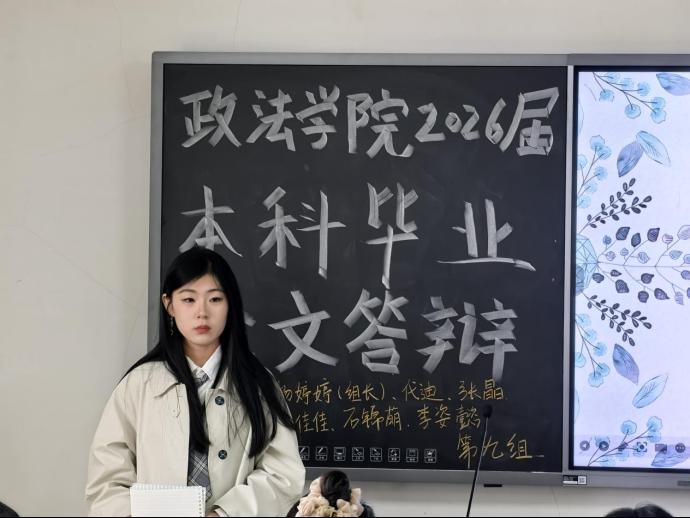 政法学院2026届
本科毕业
文答辩
婷婷(组长)、代迪、张晶.
佳佳、石锦萌、李姿懿
第九组